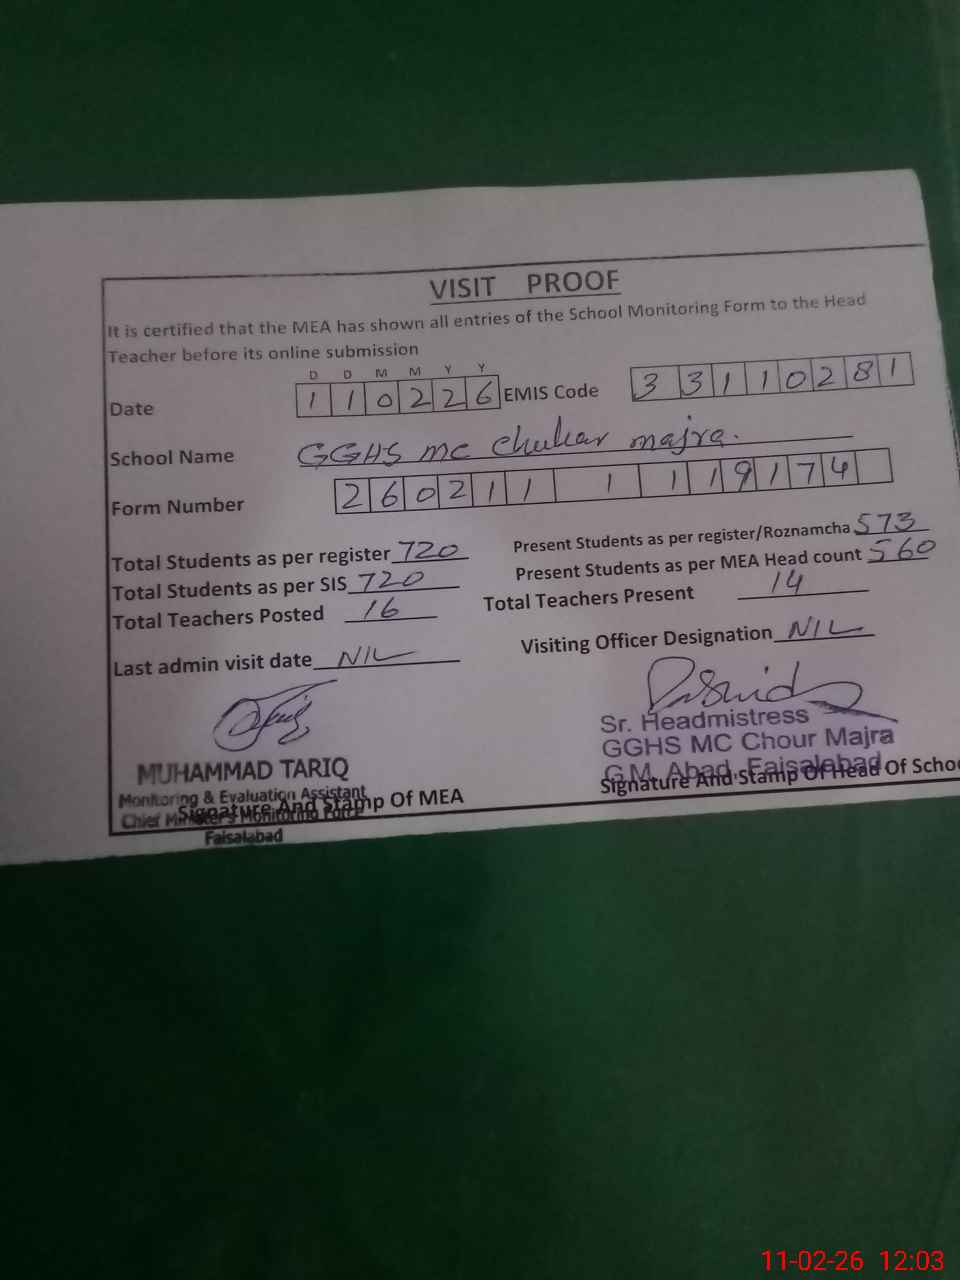 VISIT PROOF
It is certified that the MEA has shown all entries of the School Monitoring Form to the Head
Teacher before its online submission
D D M M Y Y
Date 110226 EMIS Code 33110281
School Name GGHS mc Chukar majra.
Form Number 260211 1 119174
Total Students as per register 720 Present Students as per register/Roznamcha 573
Total Students as per SIS 720 Present Students as per MEA Head count 560
Total Teachers Posted 16 Total Teachers Present 14
Last admin visit date NIL Visiting Officer Designation NIL
Sr. Headmistress
GGHS MC Chour Majra
G.M. Abad, Faisalabad
Signature And Stamp Of Head Of Schoo
MUHAMMAD TARIQ
Monitoring & Evaluation Assistant
Signature And Stamp Of MEA
Chief Minister's Monitoring Force
Faisalabad
11-02-26 12:03